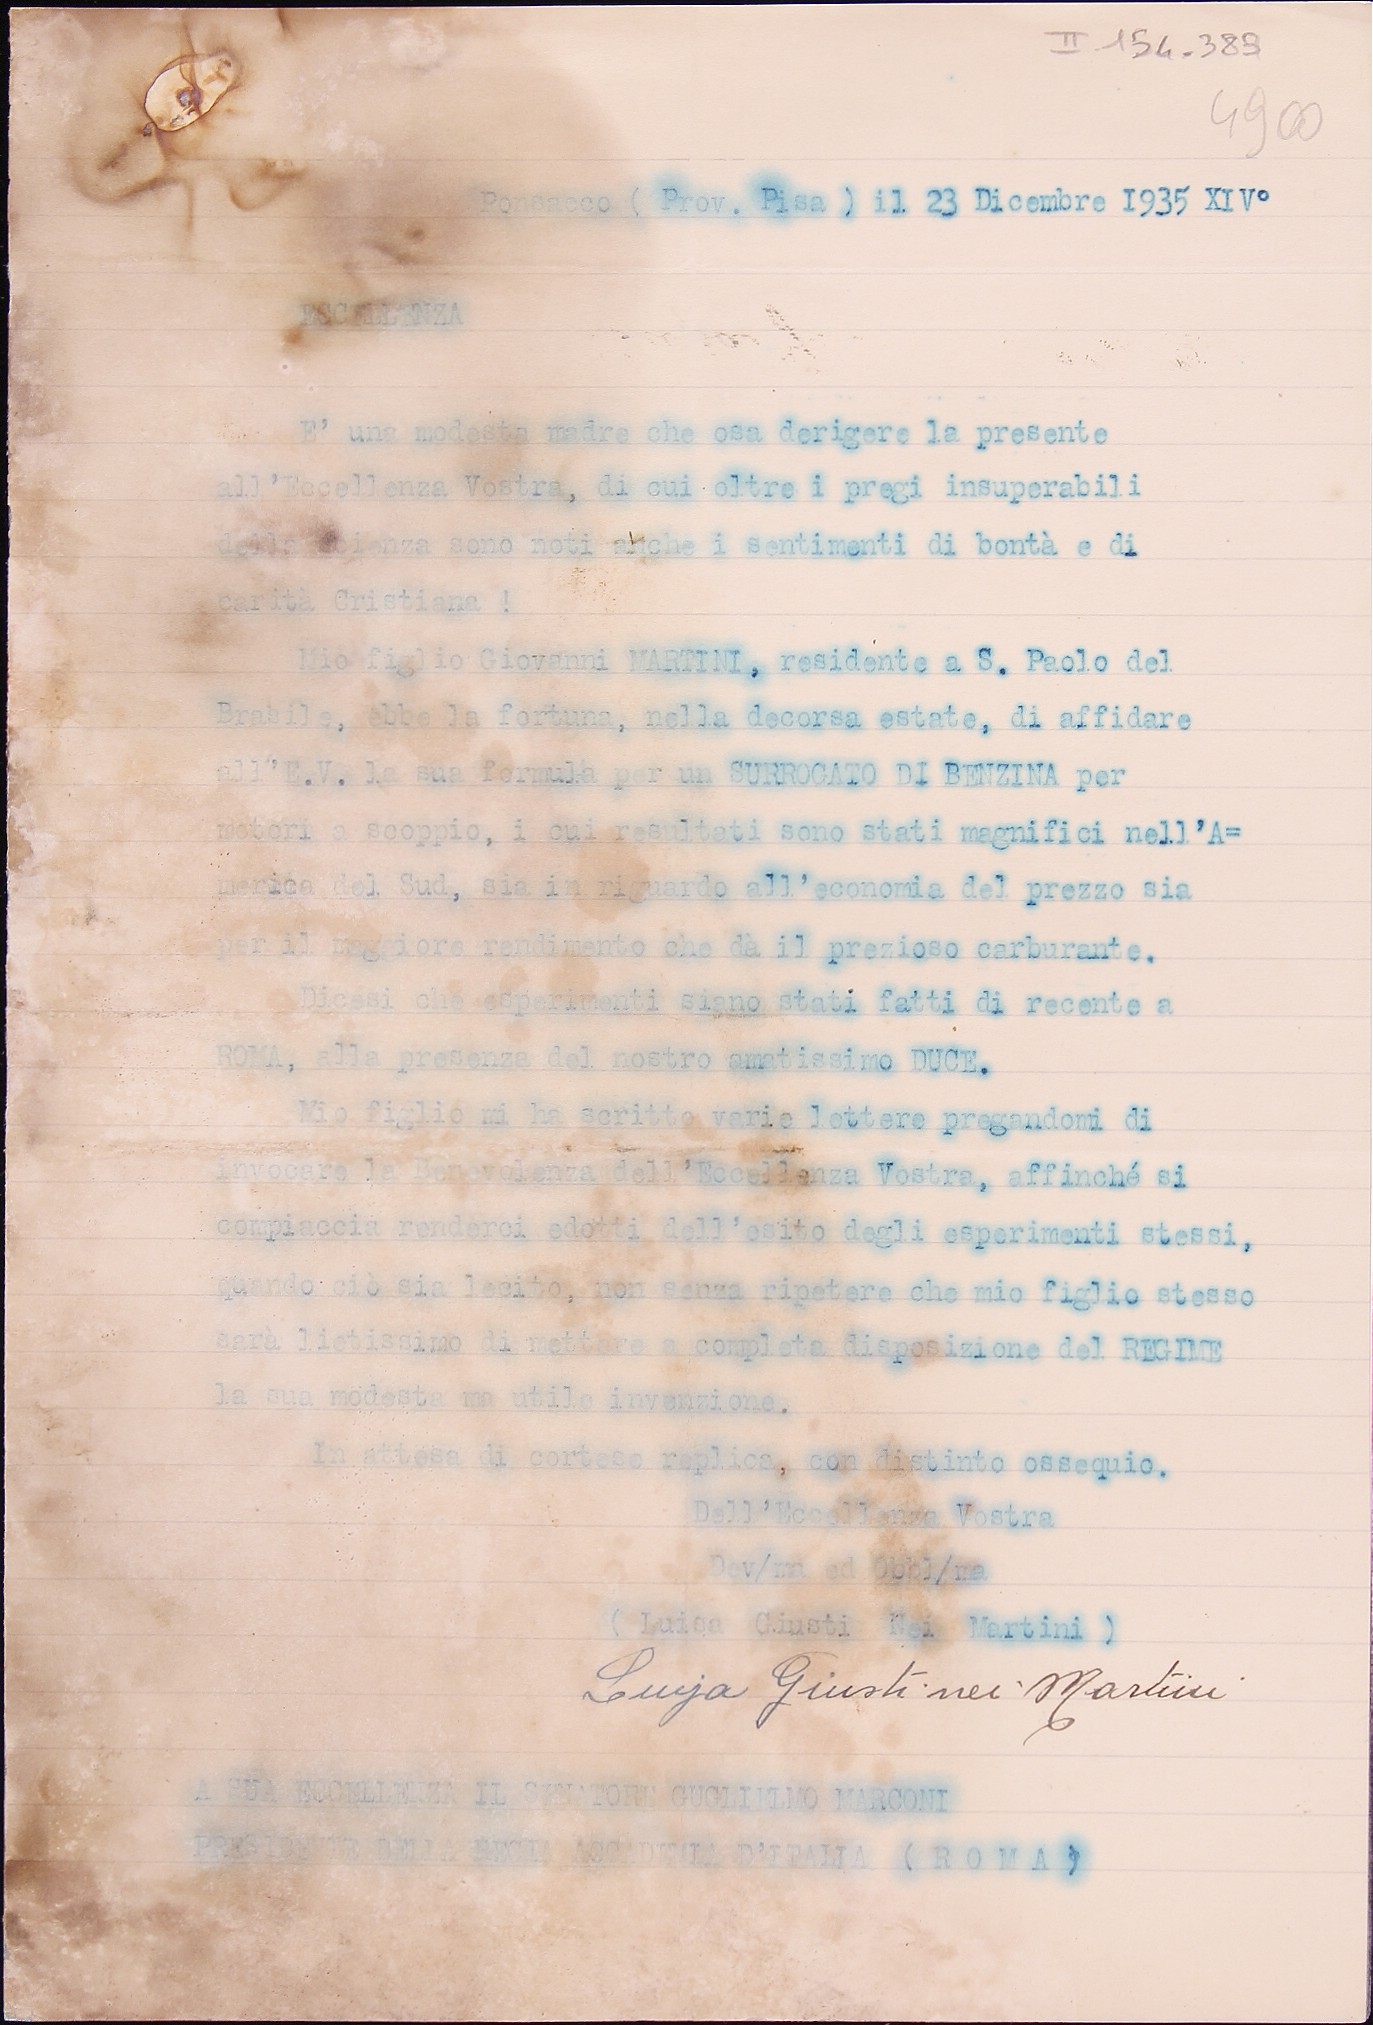 II 154.389
4900
Ponsacco ( Prov. Pisa ) il 23 Dicembre I935 XIV°
ESCELLENZA
E' una modesta madre che osa derigere la presente
all'Eccellenza Vostra, di cui oltre i pregi insuperabili
della scienza sono noti anche i sentimenti di bontà e di
carità Cristiana !
Mio figlio Giovanni MARTINI, residente a S. Paolo del
Brasile, ebbe la fortuna, nella decorsa estate, di affidare
all'E.V. la sua formula per un SURROGATO DI BENZINA per
motori a scoppio, i cui resultati sono stati magnifici nell'A=
merica del Sud, sia in riguardo all'economia del prezzo sia
per il maggiore rendimento che dà il prezioso carburante.
Dicesi che esperimenti siano stati fatti di recente a
ROMA, alla presenza del nostro amatissimo DUCE.
Mio figlio mi ha scritto varie lettere pregandomi di
invocare la Benevolenza dell'Eccellenza Vostra, affinché si
compiaccia renderci edotti dell'esito degli esperimenti stessi,
quando ciò sia lecito, non senza ripetere che mio figlio stesso
sarà lietissimo di mettere a completa disposizione del REGIME
la sua modesta ma utile invenzione.
In attesa di cortese replica, con distinto ossequio.
Dell'Eccellenza Vostra
Dev/ma ed Obbl/ma
( Luisa Giusti Nei Martini )
Luisa Giusti nei Martini
A SUA ECCELLENZA IL SENATORE GUGLIELMO MARCONI
PRESIDENTE DELLA REGIA ACCADEMIA D'ITALIA ( R O M A )